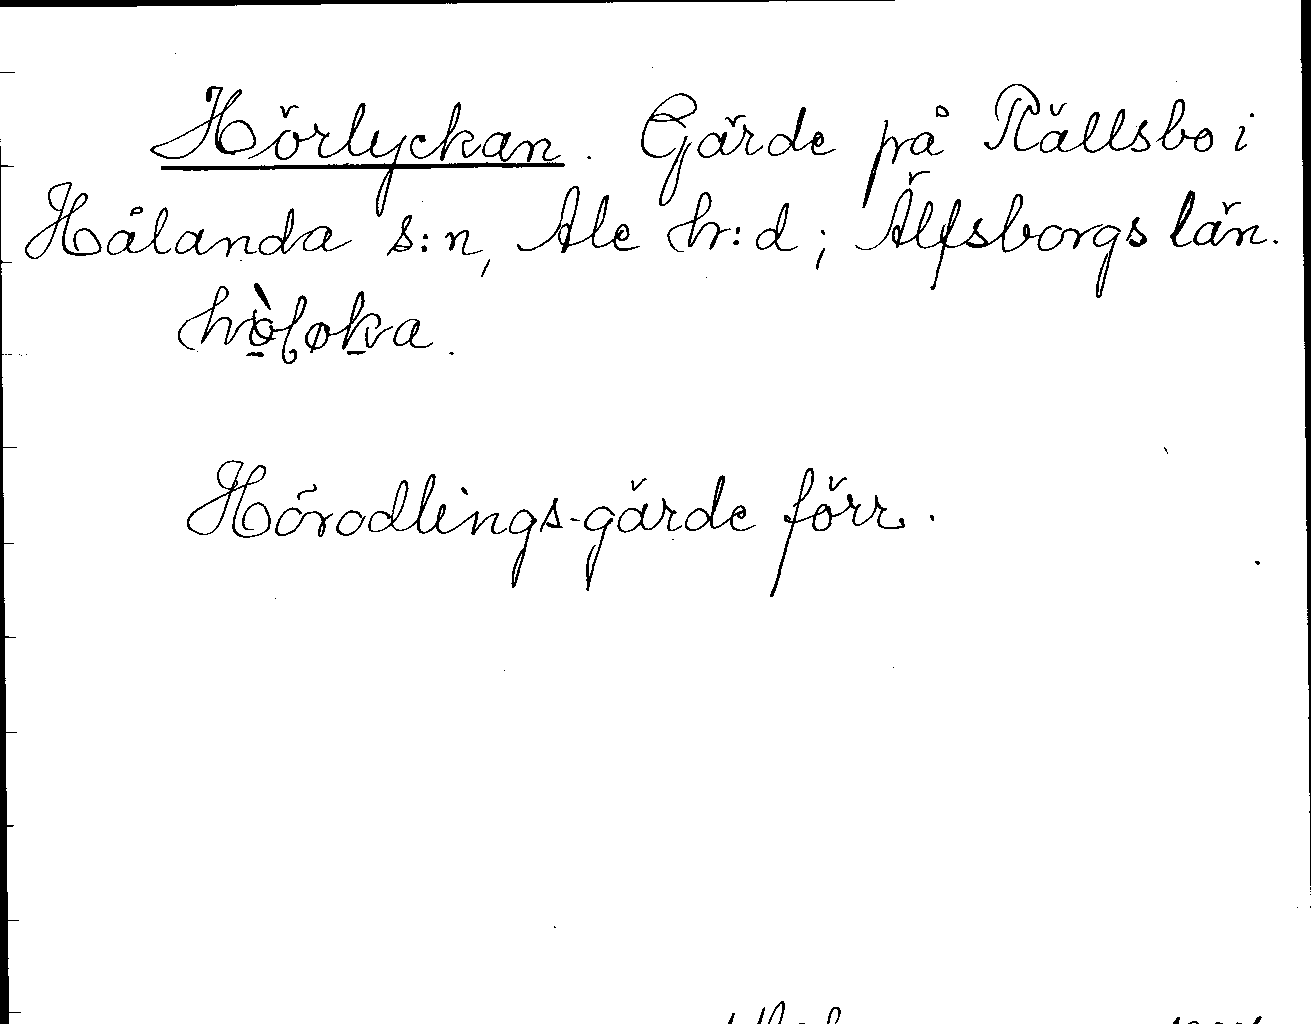 Hörlyckan. Gärde på Rällsbo i
Hålanda s:n, Ale hr:d; Älfsborgs län.
Hörodlings-gärde förr.